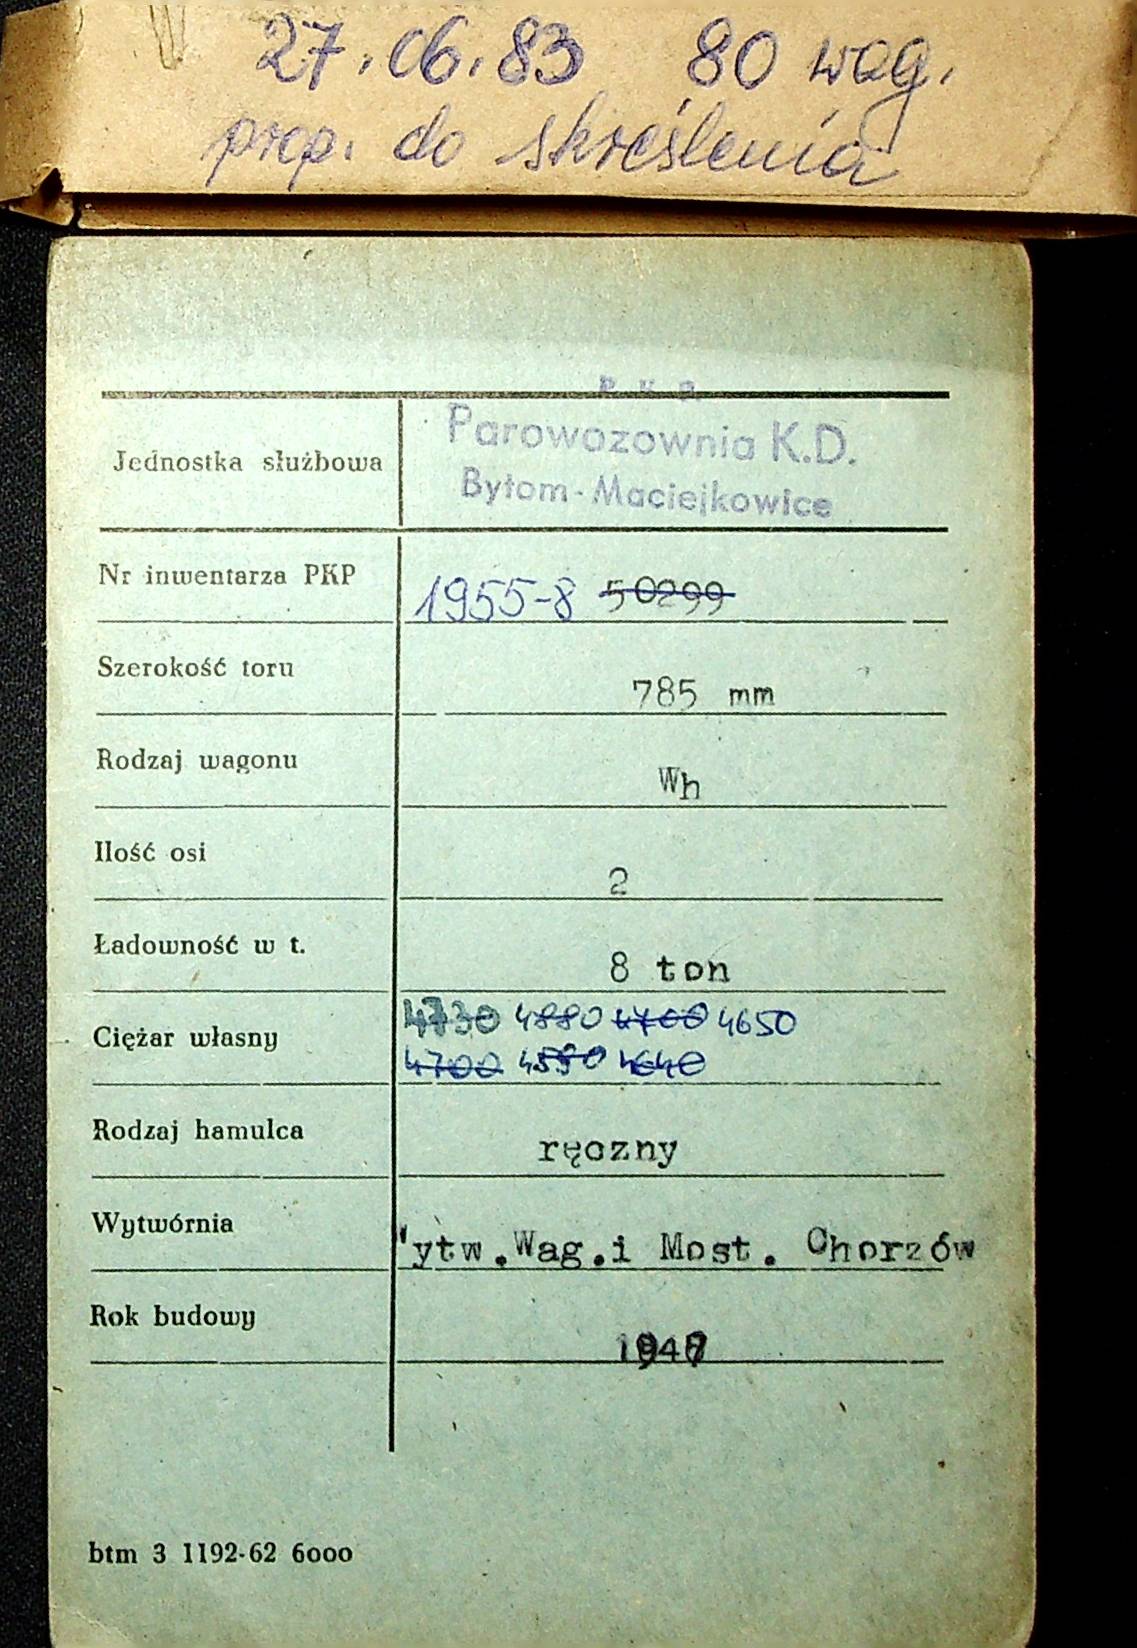 27.06.83 80 wag.
prop. do skreślenia
P K P
Jednostka służbowa
Parowozownia K.D.
Bytom-Maciejkowice
Nr inwentarza PKP 1955-8 50299
Szerokość toru 785 mm
Rodzaj wagonu Wh
Ilość osi 2
Ładowność w t. 8 ton
4730 4880 4700 4650
Ciężar własny
4700 4590 4640
Rodzaj hamulca ręczny
Wytwórnia 'ytw.Wag.i Most. Chorzów
Rok budowy
btm 3 1192-62 6000